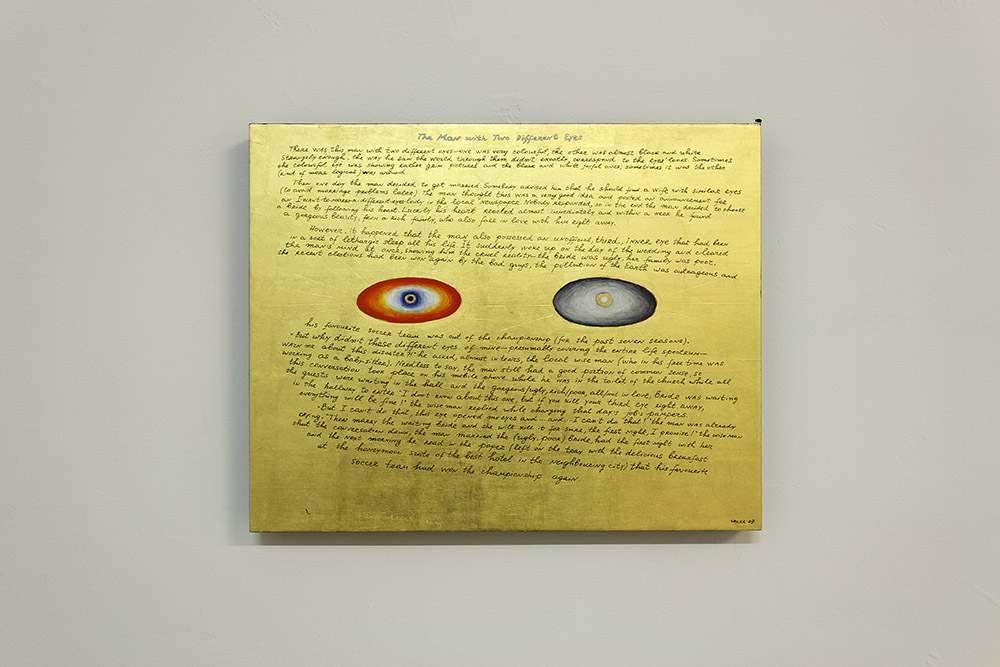 The Man with Two Different Eyes
There was this man with two different eyes-one was very colourful, the other was almost black and white
strangely enough, the way he saw the world through them didn't exactly correspond to the eyes' look. Sometimes
the colourful eye was showing rather grim pictures and the black and white joyful ones, sometimes it was the other
(kind of more logical) way around.
Then one day the man decided to get married. Somebody advised him that he should find a wife with similar eyes
(to avoid marriage problems later). The man thought this was a very good idea and posted an announcement for
an I-want-to-marry-a-different-eyes-lady in the local newspaper. Nobody responded, so in the end the man decided to choose
a bride by following his heart. Luckily his heart reacted almost immediately and within a week he found
a gorgeous beauty, from a rich family, who also fell in love with him right away.
However, it happened that the man also possessed an unofficial, third, inner eye that had been
in a sort of lethargic sleep all his life. It suddenly woke up on the day of the wedding and cleared
the man's mind at once, showing him the cruel reality-the bride was ugly, her family was poor,
the recent elections had been won again by the bad guys, the pollution of the Earth was outrageous and
his favourite soccer team was out of the championship (for the past seven seasons).
-But why didn't these different eyes of mine-presumably covering the entire life spectrum-
warn me about this disaster?!" he asked, almost in tears, the local wise man (who in his free time was
working as a baby-sitter). Needless to say, the man still had a good portion of common sense, so
this conversation took place on his mobile phone while he was in the toilet of the church while all
the guests were waiting in the hall and the gorgeous/ugly, rich/poor, all/not in love, bride was waiting
in the hallway to enter. "I don't know about this one, but if you kill your third eye right away,
everything will be fine!" the wise man replied while changing that day's job's pampers.
-But I can't do that, this eye opened my eyes and...and...I can't do that!" the man was already
crying. "Then marry the waiting bride and she will kill it for sure, the first night, I promise!" the wise man
shut the conversation down, the man married the (ugly, poor) bride, had the first night with her
and the next morning he read in the paper (left on the tray with the delicious breakfast
at the honeymoon suite of the best hotel in the neighbouring city) that his favourite
soccer team had won the championship again